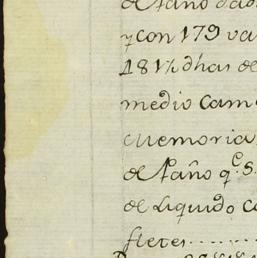 de Paño
y con 179 va
181½ dhas de
medio cam
Memoria
de Paño q.e s
de Liquido co
fletes......